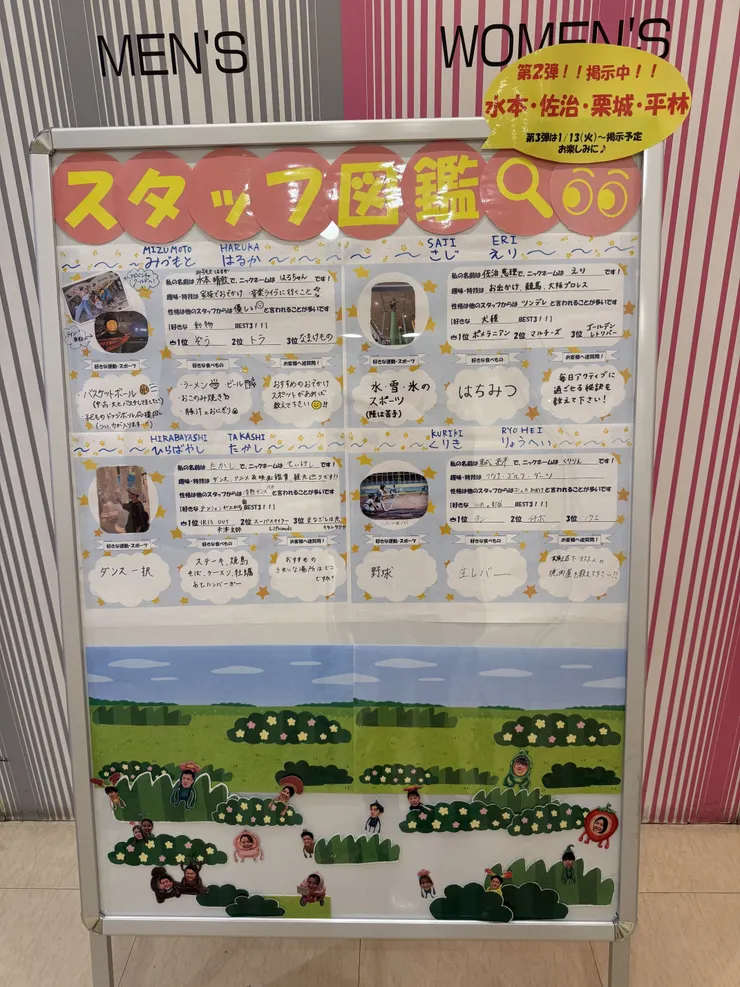 MEN'S
WOMEN'S
第2弾！！掲示中！！
水本・佐治・栗城・平林
第3弾は1/13(火)〜掲示予定
お楽しみに♪
スタッフ図鑑
MIZUMOTO HARUKA
みづもと はるか
私の名前は 水本 晴歌 で、ニックネームは はるちゃん です！
趣味・特技は 家族でおでかけ・音楽ライブに行くこと
性格は他のスタッフからは 優しい と言われることが多いです
【好きな 動物 BEST3！！】
1位 ぞう 2位 トラ 3位 なまけもの
好きな運動・スポーツ
・バスケットボール
好きな食べもの
・ラーメン ・ビール
・おこのみ焼き
・豚汁とおにぎり
お客様へ逆質問！
おすすめのおでかけ
スポットがあれば
教えて下さい
SAJI ERI
さじ えり
私の名前は 佐治 恵理 で、ニックネームは えり です！
趣味・特技は お出かけ、競馬、大阪プロレス
性格は他のスタッフからは ツンデレ と言われることが多いです
【好きな 犬種 BEST3！！】
1位 ポメラニアン 2位 マルチーズ 3位 ゴールデンレトリバー
好きな運動・スポーツ
水・雪・氷の
スポーツ
(陸は苦手)
好きな食べもの
はちみつ
お客様へ逆質問！
毎日アクティブに
過ごせる秘訣を
教えて下さい！
HIRABAYASHI TAKASHI
ひらばやし たかし
私の名前は たかし で、ニックネームは てぃけし です！
趣味・特技は ダンス、アニメ&映画鑑賞
性格は他のスタッフからは と言われることが多いです
【好きな BEST3！！】
1位 IRIS OUT 2位 3位
米津玄師
好きな運動・スポーツ
ダンス一択
好きな食べもの
ステーキ、焼鳥
そば、ラーメン、牡蠣
お客様へ逆質問！
おすすめの
きれいな場所はどこ
ですか？
KURIKI RYOHEI
くりき りょうへい
私の名前は で、ニックネームは くりりん です！
趣味・特技は
性格は他のスタッフからは と言われることが多いです
【好きな BEST3！！】
1位 タン 2位 3位
好きな運動・スポーツ
野球
好きな食べもの
生レバー
お客様へ逆質問！
焼肉屋を教えて下さい!!